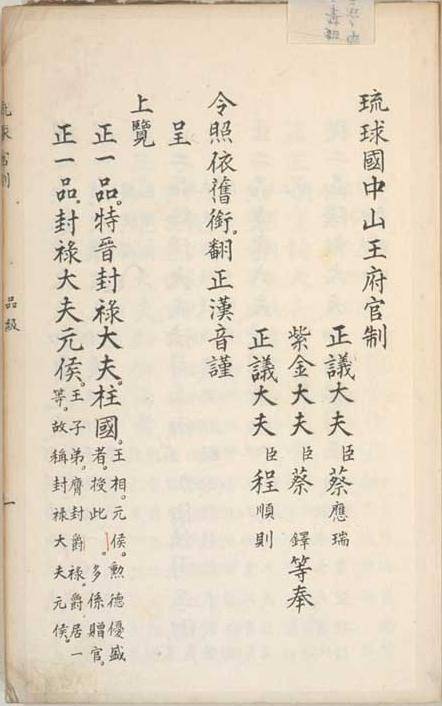 琉球國中山王府官制
正議大夫臣蔡應瑞
紫金大夫臣蔡鐸等奉
正議大夫臣程順則
令照依舊銜。翻正漢音謹
呈
上覽
正一品。特晉封祿大夫。柱國。
王相。元侯。勲德優盛
者。授此。多係贈官。
正一品。封祿大夫元侯。
王子弟。膺封爵祿。爵居一
等。故稱封祿大夫元侯。
品級
一